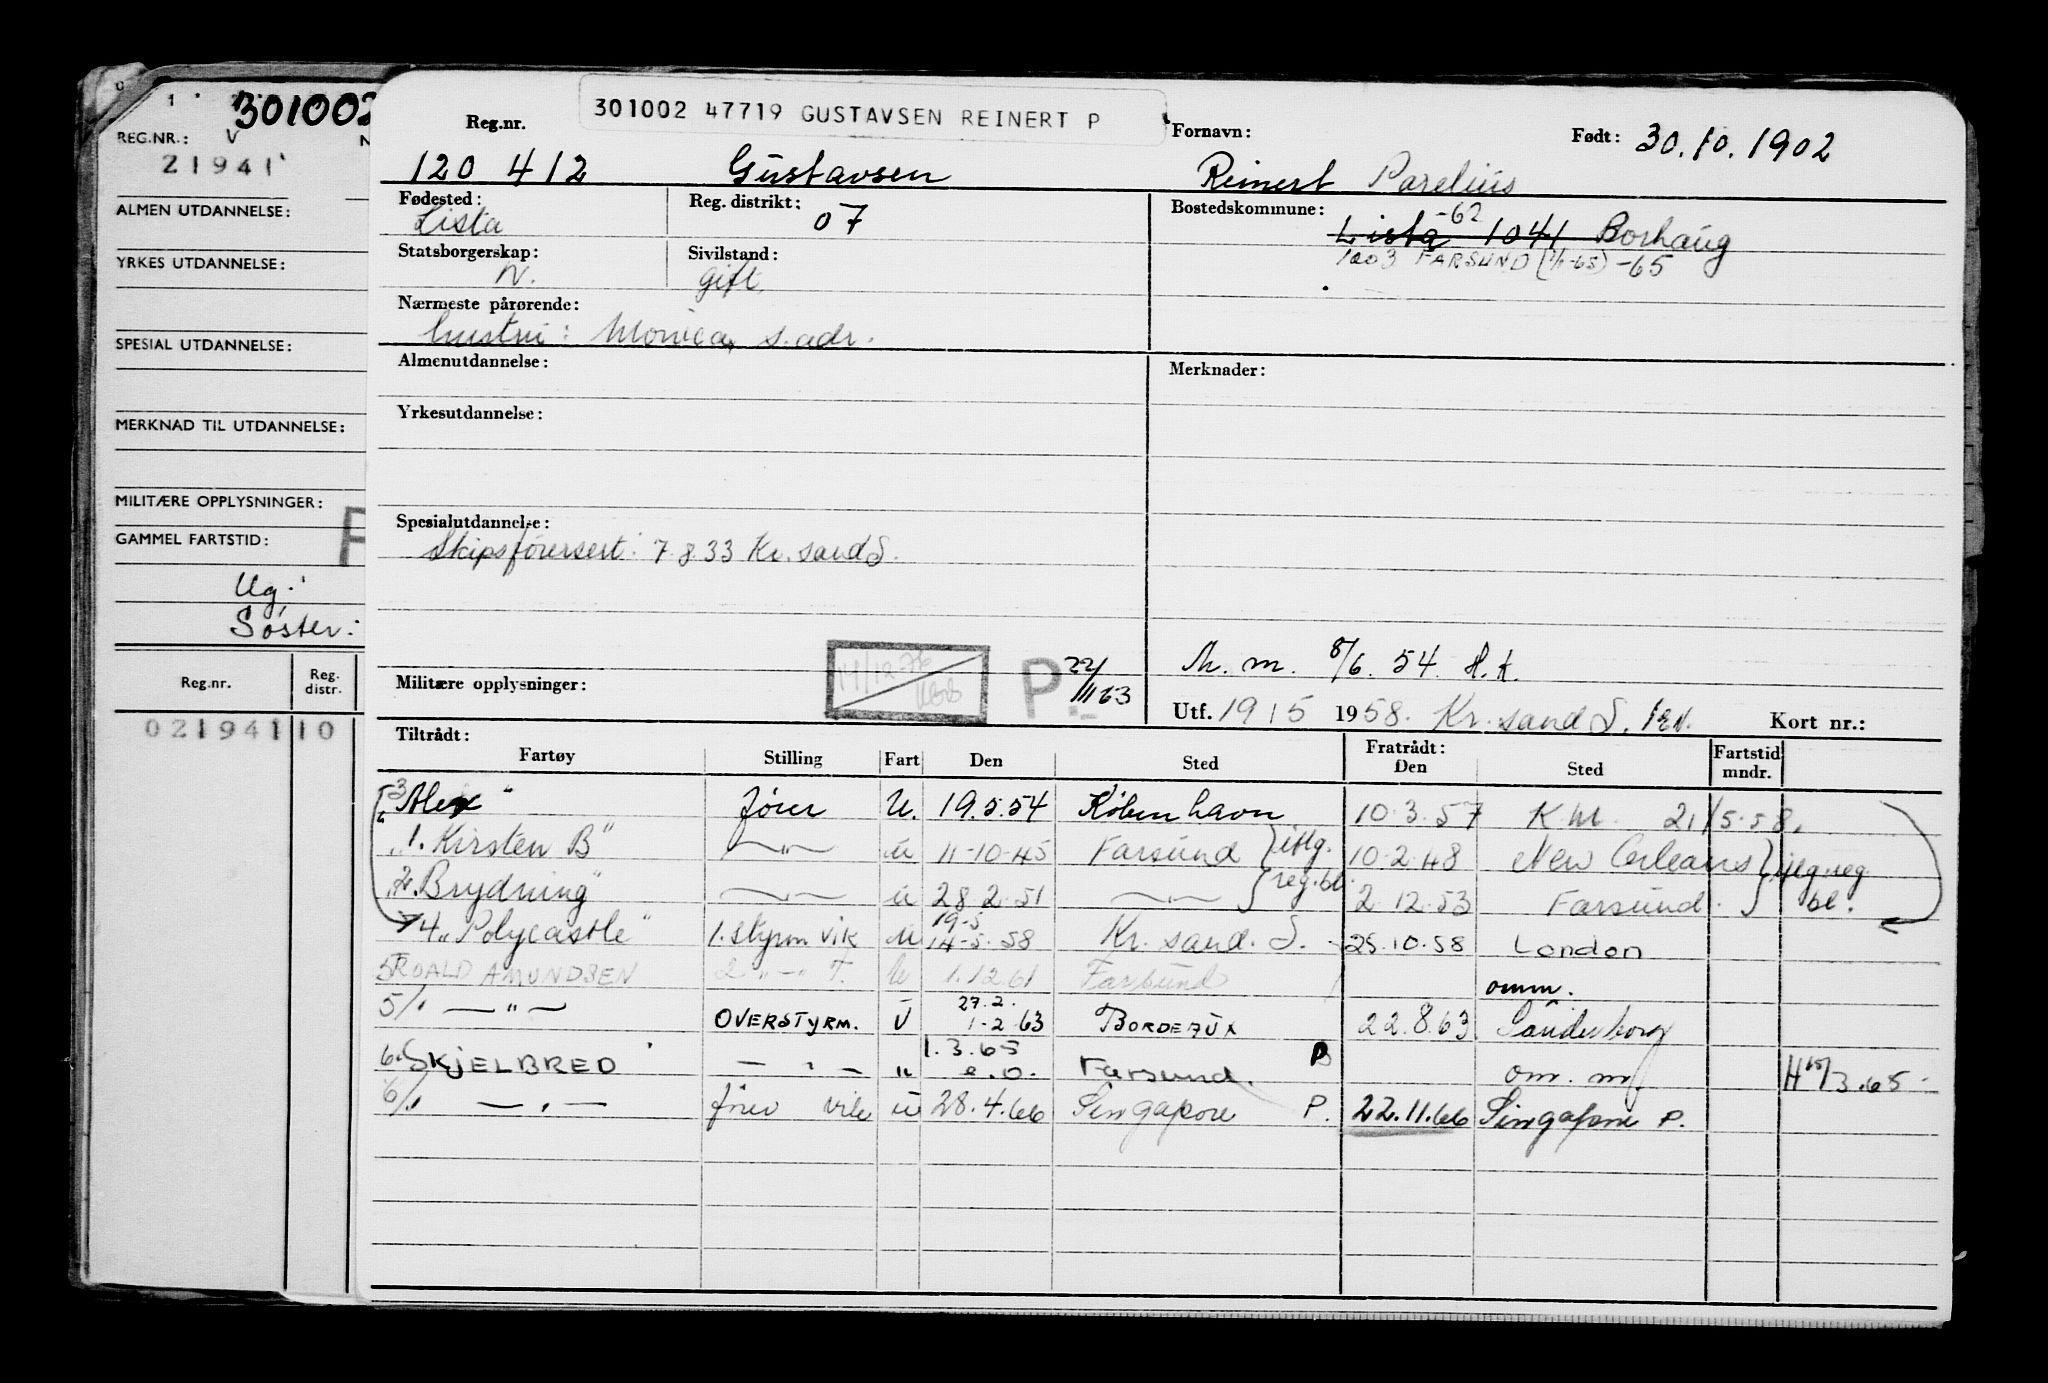 301002
REG.NR.: V
21941
ALMEN UTDANNELSE:
YRKES UTDANNELSE:
SPESIAL UTDANNELSE:
MERKNAD TIL UTDANNELSE:
MILITÆRE OPPLYSNINGER:
GAMMEL FARTSTID:
Ug.:
Søster:
Reg.nr. Reg. distr.
021941 10
301002 47719 GUSTAVSEN REINERT P
Reg.nr. Fornavn: Født: 30.10.1902
120 412 Gustavsen Reinert Parelius
Fødested: Reg. distrikt: Bostedskommune:
Lista 07 Lista -62 1041 Borhaug
Statsborgerskap: Sivilstand: 1003 FARSUND (1/1-65) -65
N. gift.
Nærmeste pårørende:
hustru: Monica, s. adr.
Almenutdannelse: Merknader:
Yrkesutdannelse:
Spesialutdannelse:
Skipsførersert: 7.8.33 Kr. sand S.
M. m. 8/6. 54. H.K.
Militære opplysninger: P. 22/11 63
Utf. 19/5 1958. Kr. sand S. Kort nr.:
Tiltrådt: Fratrådt: Fartstid
Fartøy Stilling Fart Den Sted Den Sted mndr.
3 "Alex" fører U. 19.5.54 København 10.3.57 K.M. 21/5-58.
"1. Kirsten B" —"— u 11-10-45 Farsund } iflg. 10.2.48 New Orleans } iflg. reg.
"2. Brydning" —"— u 28.2.51 —"— } reg.bl. 2.12.53 Farsund. } bl.
19-5
4 "Polycastle" 1. styrm vik u 14-5-58 Kr. sand. S. 25.10.58 London
5 ROALD AMUNDSEN 2 "-" T. U 1.12.61 Farsund omm.
27.2.
5/1 —"— OVERSTYRM. U 1-2-63 BORDEAUX 22.8.63 Sønderborg
1.3.65
6. SKJELBRED — " — " e.o. Farsund. P om. m. H 15/3.65
6/1 —"— fører vik u 28.4.66 Singapore P. 22.11.66 Singapore P.